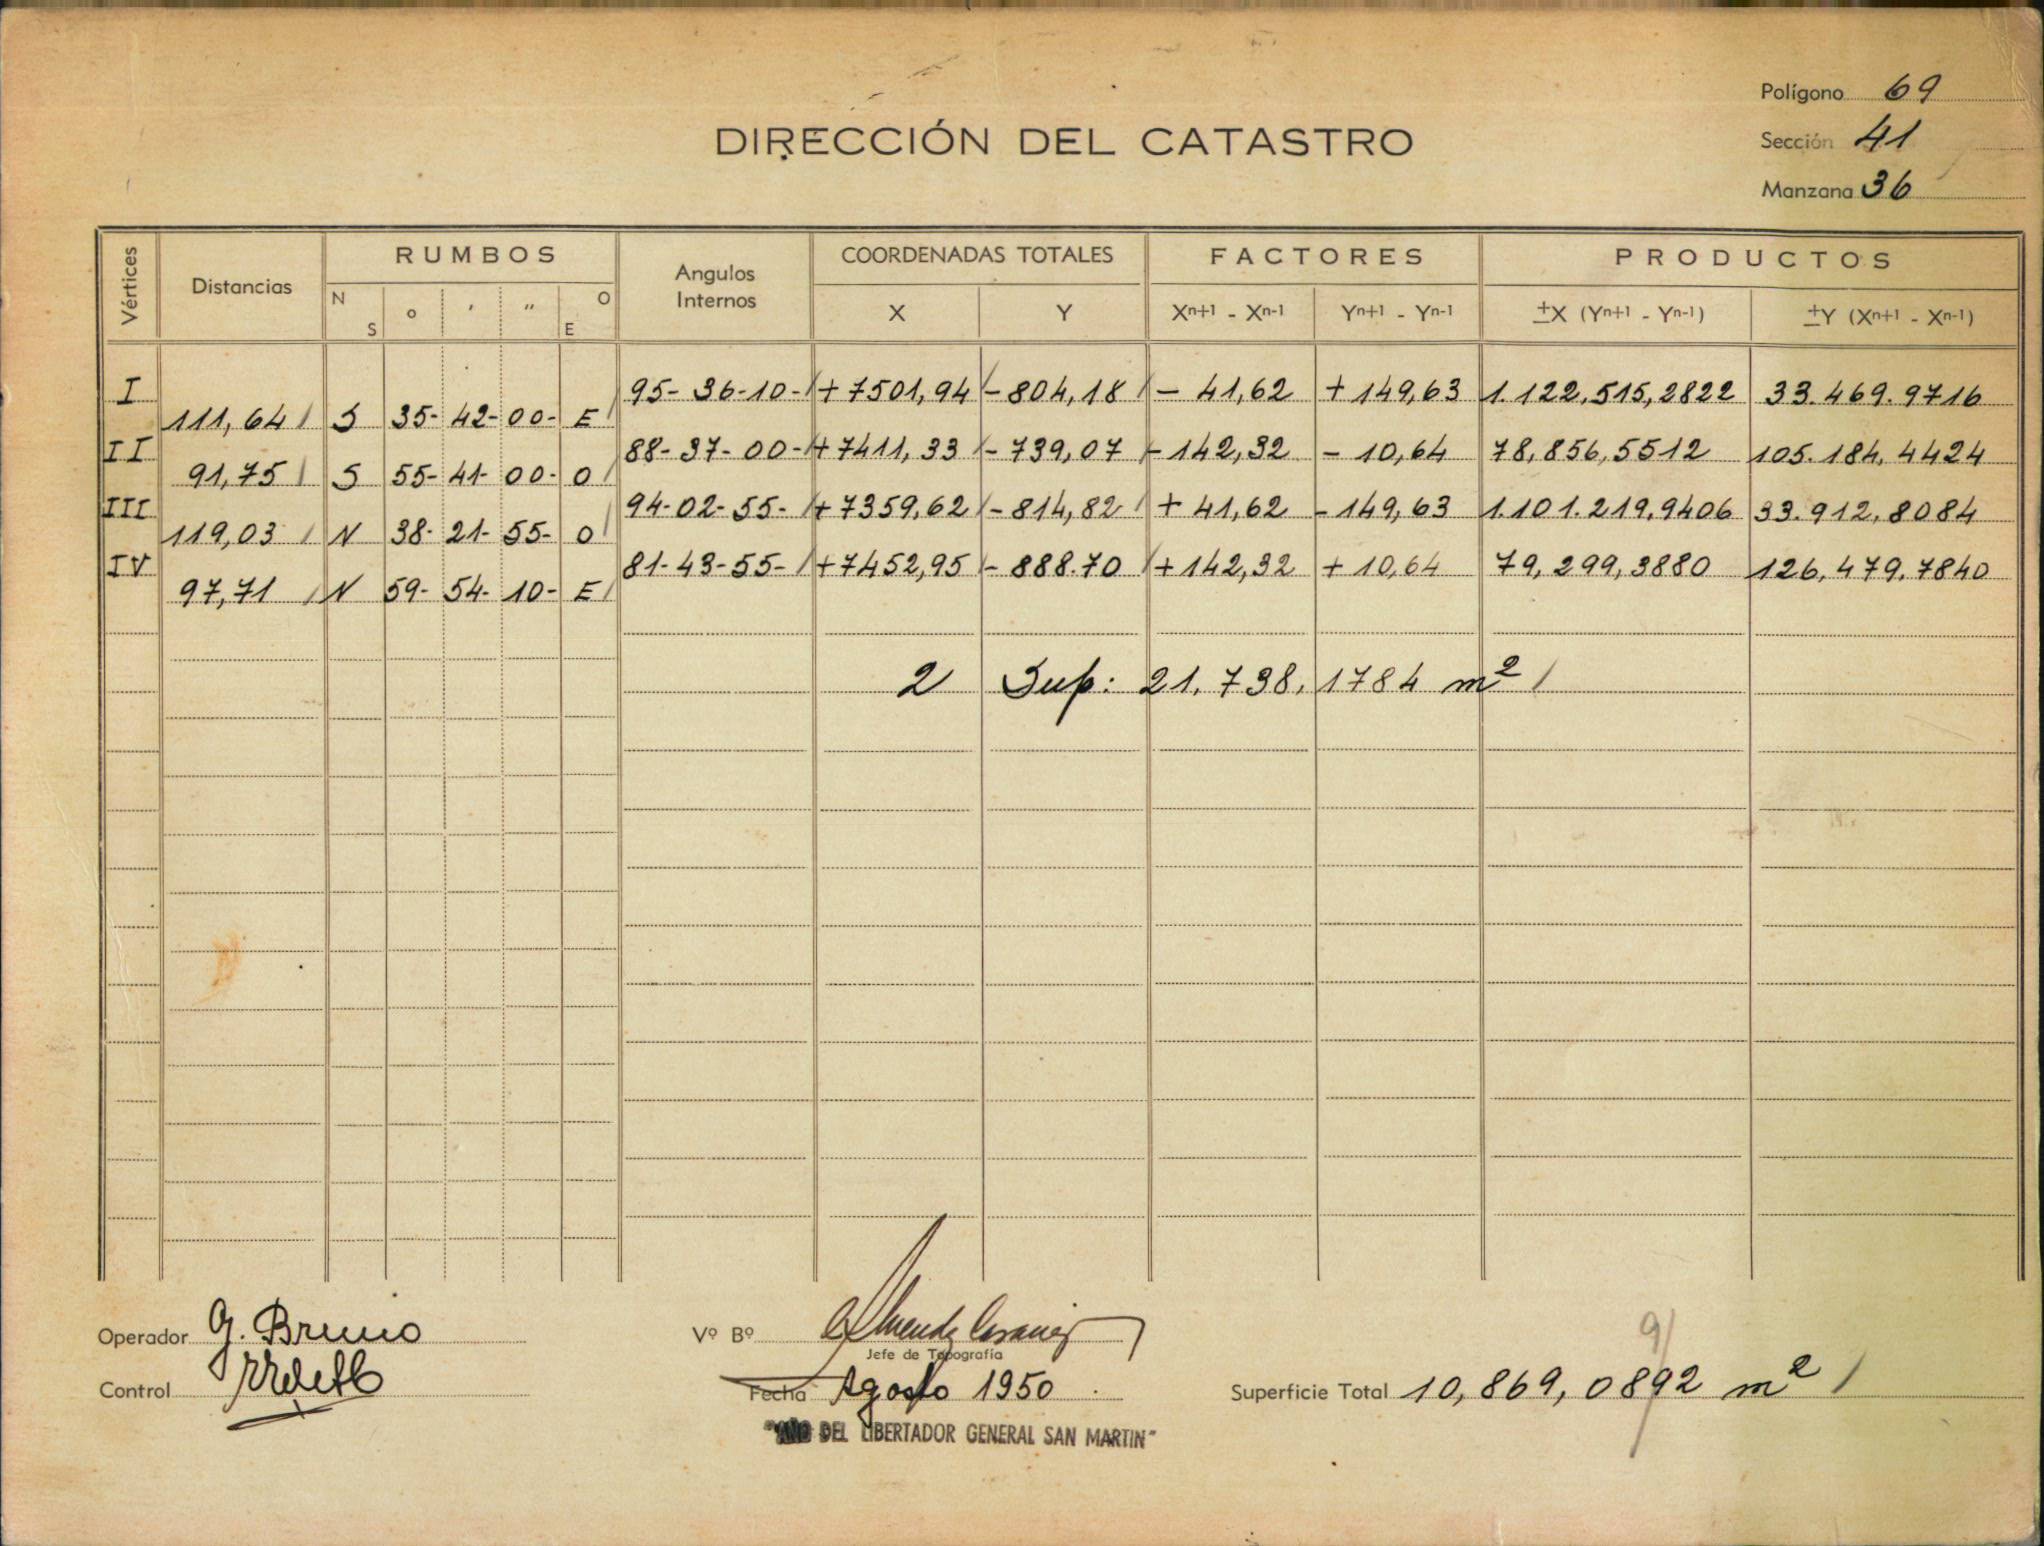 Polígono 69
DIRECCIÓN DEL CATASTRO
Sección 41
Manzana 36
Vértices Distancias RUMBOS Angulos Internos COORDENADAS TOTALES FACTORES PRODUCTOS
N S ° ' " O E X Y Xn+1 - Xn-1 Yn+1 - Yn-1 ±X (Yn+1 - Yn-1) ±Y (Xn+1 - Xn-1)
I 95-36-10- +7501,94 -804,18 - 41,62 + 149,63 1.122,515,2822 33.469.9716
111,64 S 35- 42- 00- E
II 88-37-00- +7411,33 -739,07 -142,32 - 10,64 78,856,5512 105.184,4424
91,75 S 55- 41- 00- O
III 94-02-55- +7359,62 -814,82 + 41,62 -149,63 1.101.219,9406 33.912,8084
119,03 N 38- 21- 55- O
IV 81-43-55- +7452,95 -888.70 +142,32 + 10,64 79,299,3880 126,479,7840
97,71 N 59- 54- 10- E
2 Sup: 21.738,1784 m²
Operador G. Bruno
Vº Bº
Jefe de Topografía
9
Control
Fecha Agosto 1950
Superficie Total 10,869,0892 m²
"AÑO DEL LIBERTADOR GENERAL SAN MARTIN"